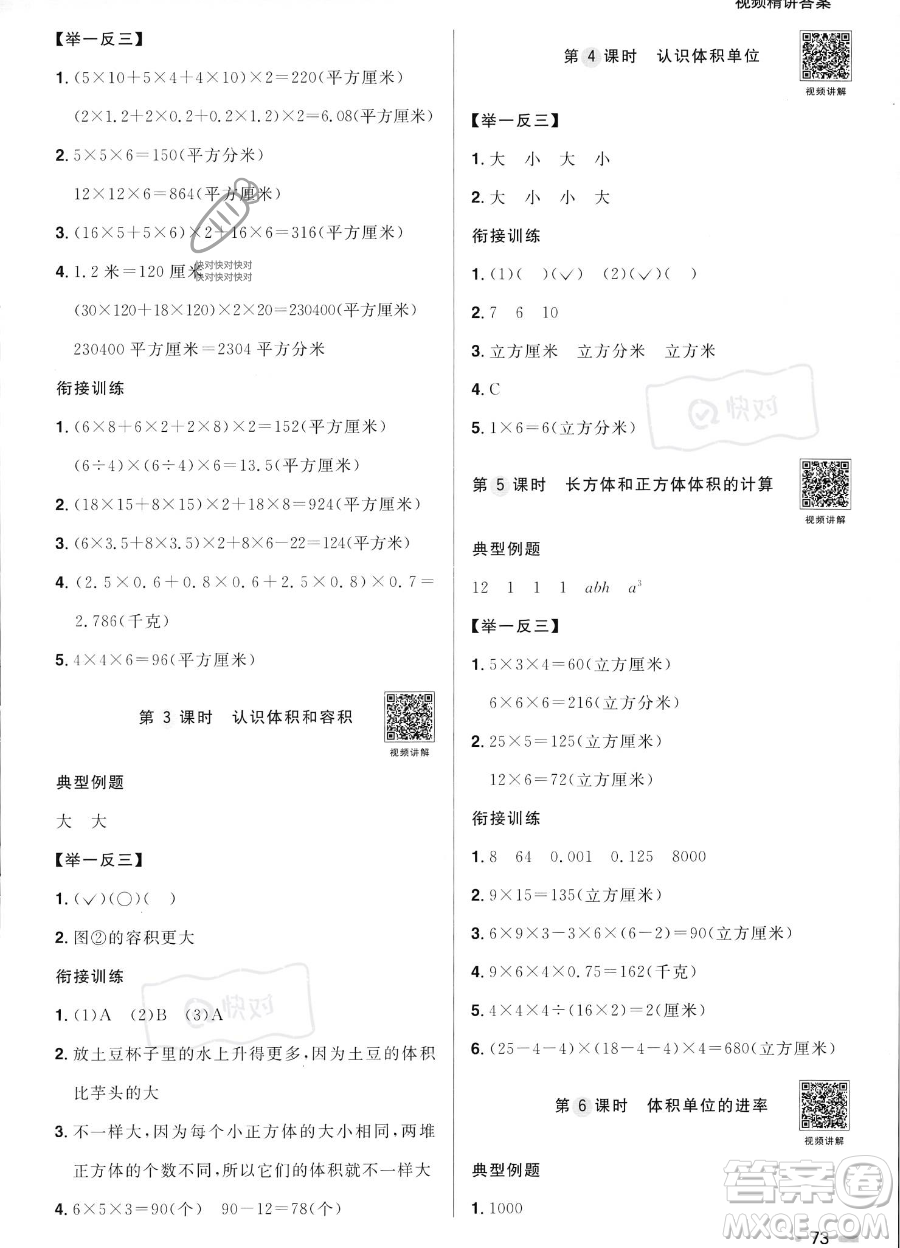 视频精讲答案
【举一反三】
1. (5×10+5×4+4×10)×2=220(平方厘米)
(2×1.2+2×0.2+0.2×1.2)×2=6.08(平方厘米)
2. 5×5×6=150(平方分米)
12×12×6=864(平方厘米)
3. (16×5+5×6)×2+16×6=316(平方厘米)
4. 1.2米=120厘米
(30×120+18×120)×2×20=230400(平方厘米)
230400平方厘米=2304平方分米
快对快对快对
快对快对快对
衔接训练
1. (6×8+6×2+2×8)×2=152(平方厘米)
(6÷4)×(6÷4)×6=13.5(平方厘米)
2. (18×15+8×15+8×18)×2-18×8=924(平方厘米)
3. (6×3.5+8×3.5)×2+8×6-22=124(平方米)
4. (2.5×0.6+0.8×0.6+0.8×2.5)×0.7=
2.786(千克)
5. 4×4×6=96(平方厘米)
第3课时 认识体积和容积
视频讲解
典型例题
大 大
【举一反三】
1. (✓)(○)( )
2. 图②的容积更大
衔接训练
1. (1)A (2)B (3)A
2. 放土豆杯子里的水上升得更多,因为土豆的体积
比芋头的大
3. 不一样大,因为每个小正方体的大小相同,两堆
正方体的个数不同,所以它们的体积不一样大
4. 6×5×3=90(个) 90-12=78(个)
快对
第4课时 认识体积单位
视频讲解
【举一反三】
1. 大 小 大 小
2. 大 小 小 大
衔接训练
1. (1)( )(✓) (2)(✓)( )
2. 7 6 10
3. 立方厘米 立方分米 立方米
4. C
5. 1×6=6(立方分米)
快对
第5课时 长方体和正方体体积的计算
视频讲解
典型例题
12 1 1 1 abh a³
【举一反三】
1. 5×3×4=60(立方厘米)
6×6×6=216(立方分米)
2. 25×5=125(立方厘米)
12×6=72(立方厘米)
衔接训练
1. 8 64 0.001 0.125 8000
2. 9×15=135(立方厘米)
3. 6×9×3-3×6×(6-2)=90(立方厘米)
4. 6×4×9×0.75=162(千克)
5. 4×4×4÷(16×2)=2(厘米)
6. (25-4-4)×(18-4-4)×4=680(立方厘米)
第6课时 体积单位的进率
视频讲解
典型例题
1. 1000
73
答案圈
MXQE.COM